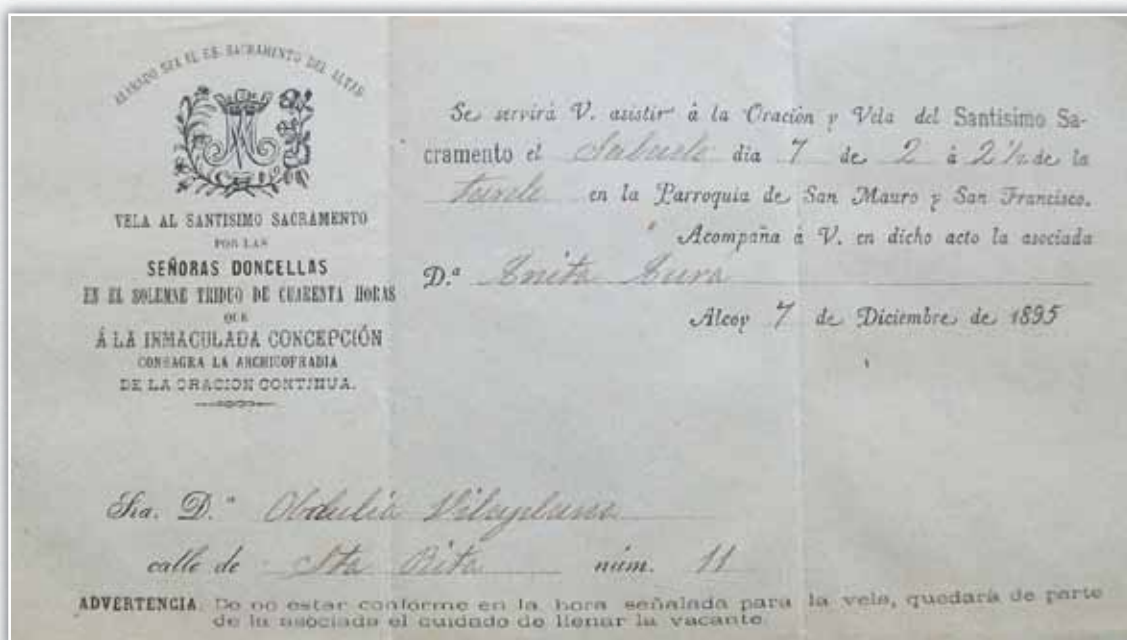 ALABADO SEA EL SS. SACRAMENTO DEL ALTAR
VELA AL SANTISIMO SACRAMENTO
POR LAS
SEÑORAS DONCELLAS
EN EL SOLEMNE TRIDUO DE CUARENTA HORAS
QUE
Á LA INMACULADA CONCEPCIÓN
CONSAGRA LA ARCHICOFRADIA
DE LA ORACION CONTINUA.
Se servirá V. asistir á la Oración y Vela del Santísimo Sa-
cramento el Sabado dia 7 de 2 á 2 1/2 de la
tarde en la Parroquia de San Mauro y San Francisco.
Acompaña á V. en dicho acto la asociada
D.ª Anita
Alcoy 7 de Diciembre de 1895
Sra. D.ª Obdulia Vilaplana
calle de Sta Rita núm. 11
ADVERTENCIA. De no estar conforme en la hora señalada para la vela, quedará de parte
de la asociada el cuidado de llenar la vacante.